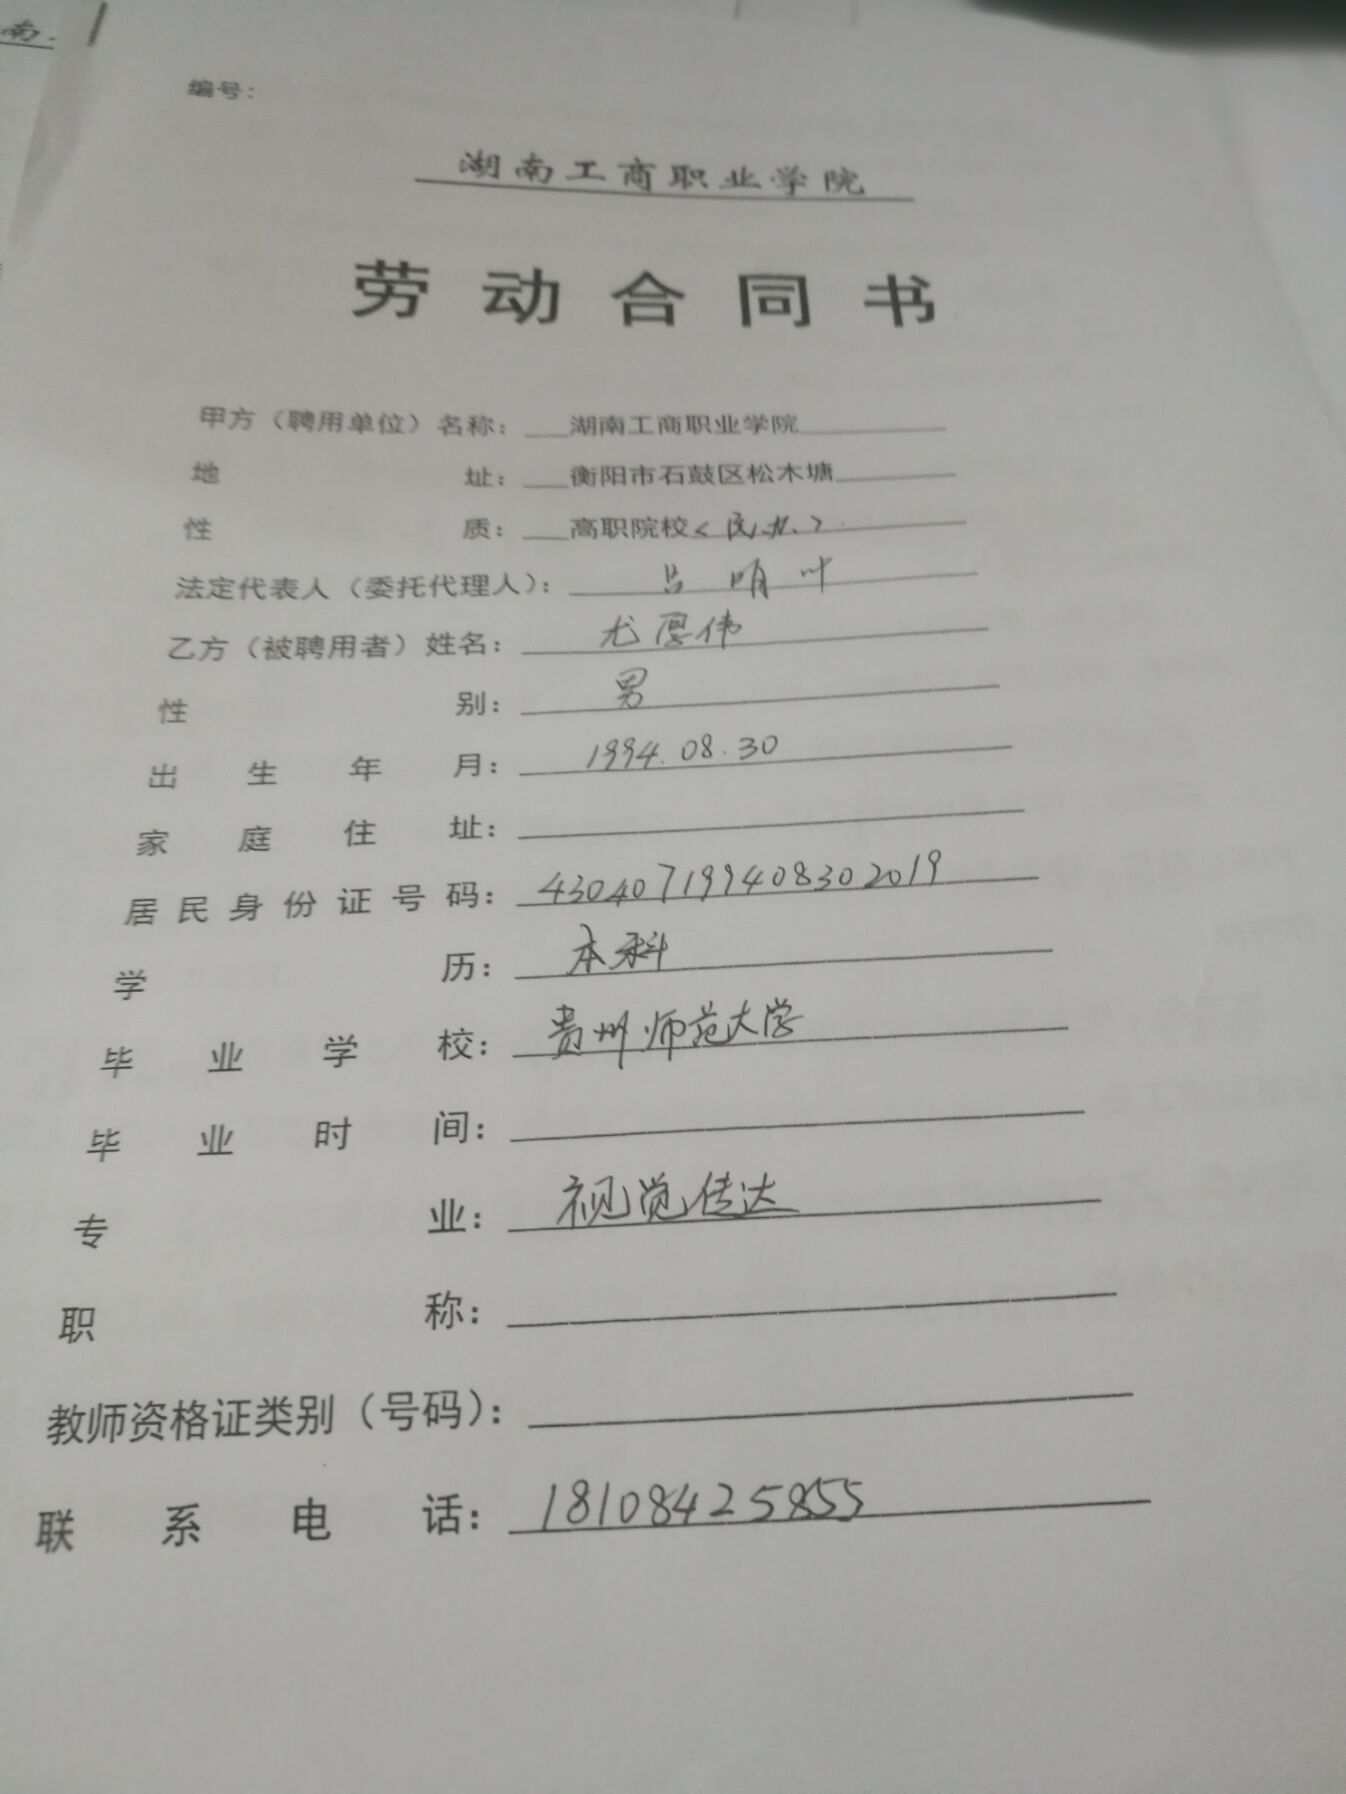 南.
编号：
湖南工商职业学院
劳动合同书
甲方（聘用单位）名称： 湖南工商职业学院
地址： 衡阳市石鼓区松木塘
性质： 高职院校<民办>
法定代表人（委托代理人）： 吕明叶
乙方（被聘用者）姓名： 尤厚伟
性别： 男
出生年月： 1994.08.30
家庭住址：
居民身份证号码： 430407199408302019
学历： 本科
毕业学校： 贵州师范大学
毕业时间：
专业： 视觉传达
职称：
教师资格证类别（号码）：
联系电话： 18108425855